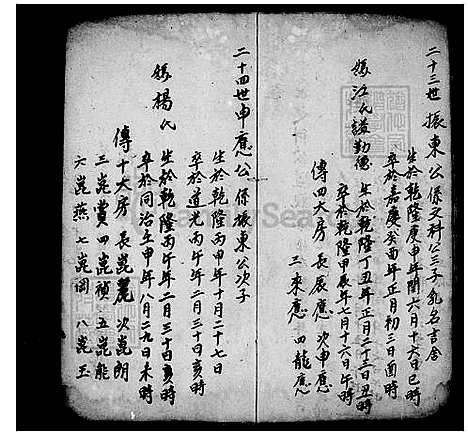 二十三世 振東公係文科公三子 乳名吉舍
生於乾隆庚申年閏六月十六日巳時
卒於嘉慶癸酉年正月初三日酉時
媽江氏謚勤儉 生於乾隆丁丑年正月二十二日丑時
卒於乾隆甲辰年七月十六日午時
傳四大房 長展應 次申應
三來應 四龍應
二十四世申應公係振東公次子
生於乾隆丙申年十月二十七日
卒於道光丙午年二月三十日亥時
媽楊氏 生於乾隆丙午年二月三十日亥時
卒於同治壬申年八月二九日未時
傳十大房 長崑麗 次崑朗
三崑賞 四崑禎 五崑能
六崑燕 七崑岡 八崑玉